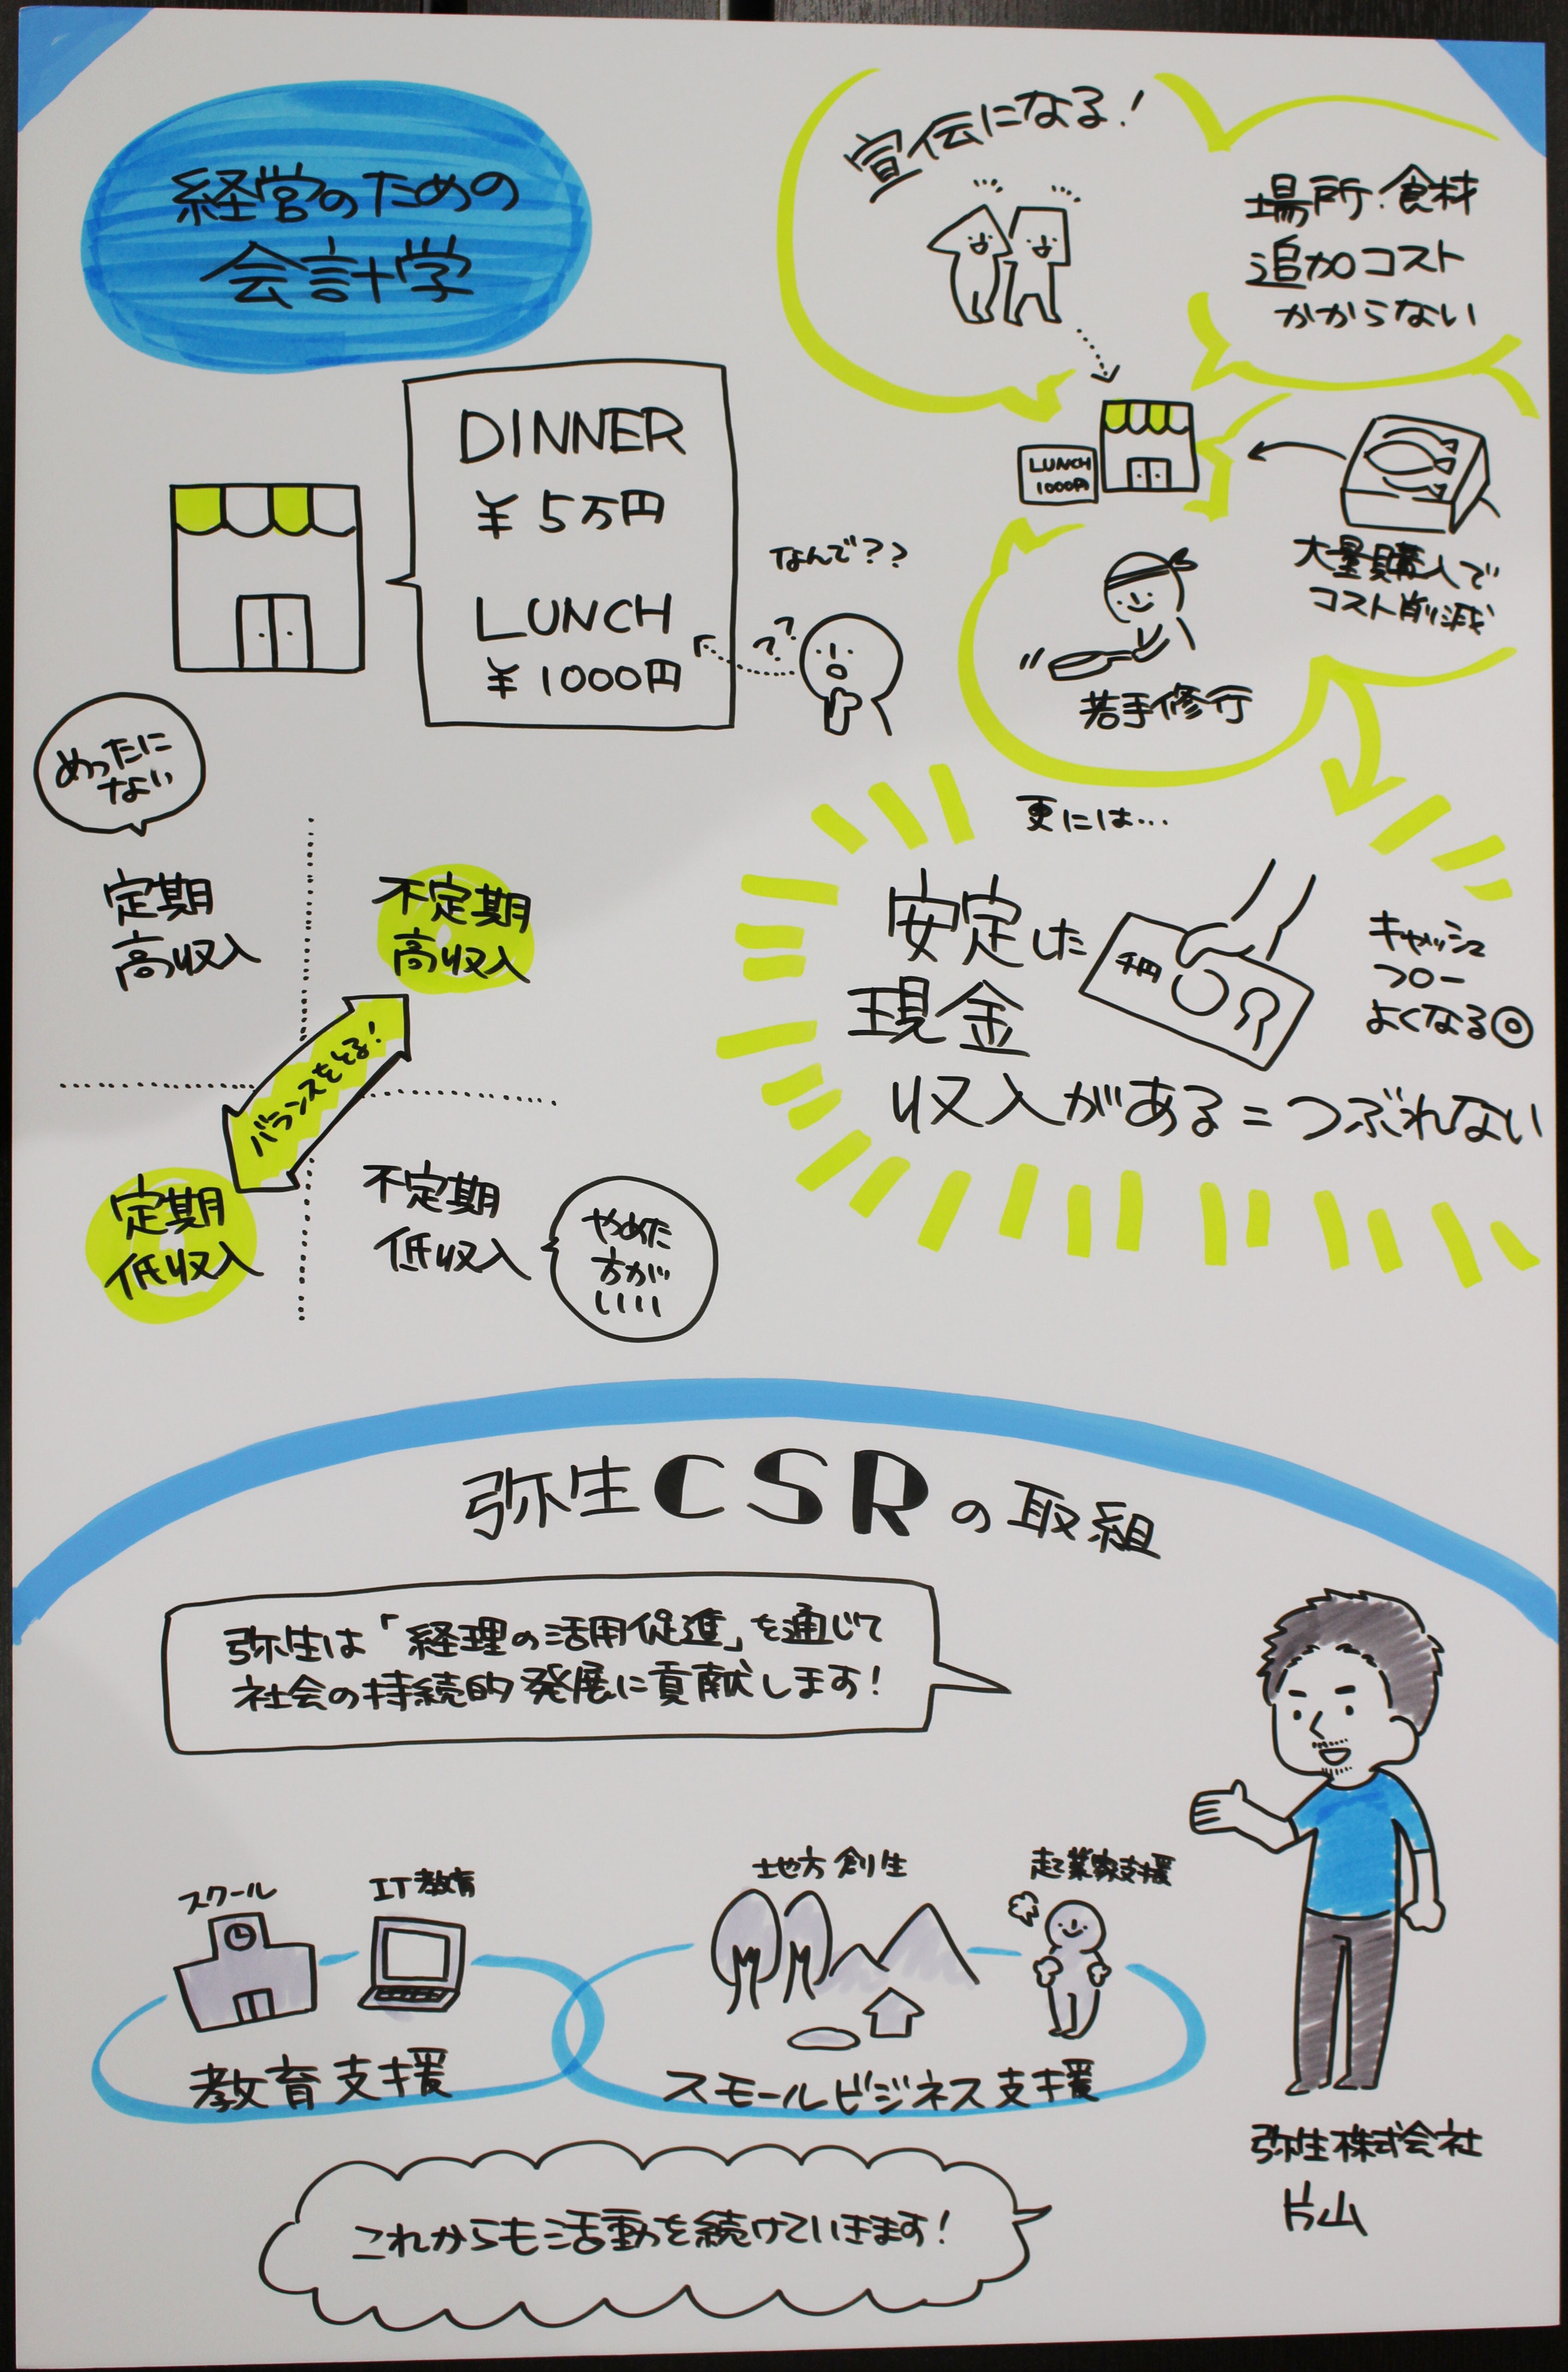 経営のための
会計学
DINNER
¥5万円
LUNCH
¥1000円
なんで??
??
宣伝になる!
場所・食材
追加コスト
かからない
LUNCH
1000円
大量購入で
コスト削減
若手修行
更には…
安定した
現金
収入がある=つぶれない
千円
キャッシュ
フロー
よくなる◎
めったに
ない
定期
高収入
不定期
高収入
バランスをとる!
定期
低収入
不定期
低収入
やめた
方が
いい
弥生CSRの取組
弥生は「経理の活用促進」を通じて
社会の持続的発展に貢献します!
スクール
IT教育
教育支援
地方創生
起業家支援
スモールビジネス支援
弥生株式会社
片山
これからも活動を続けていきます!